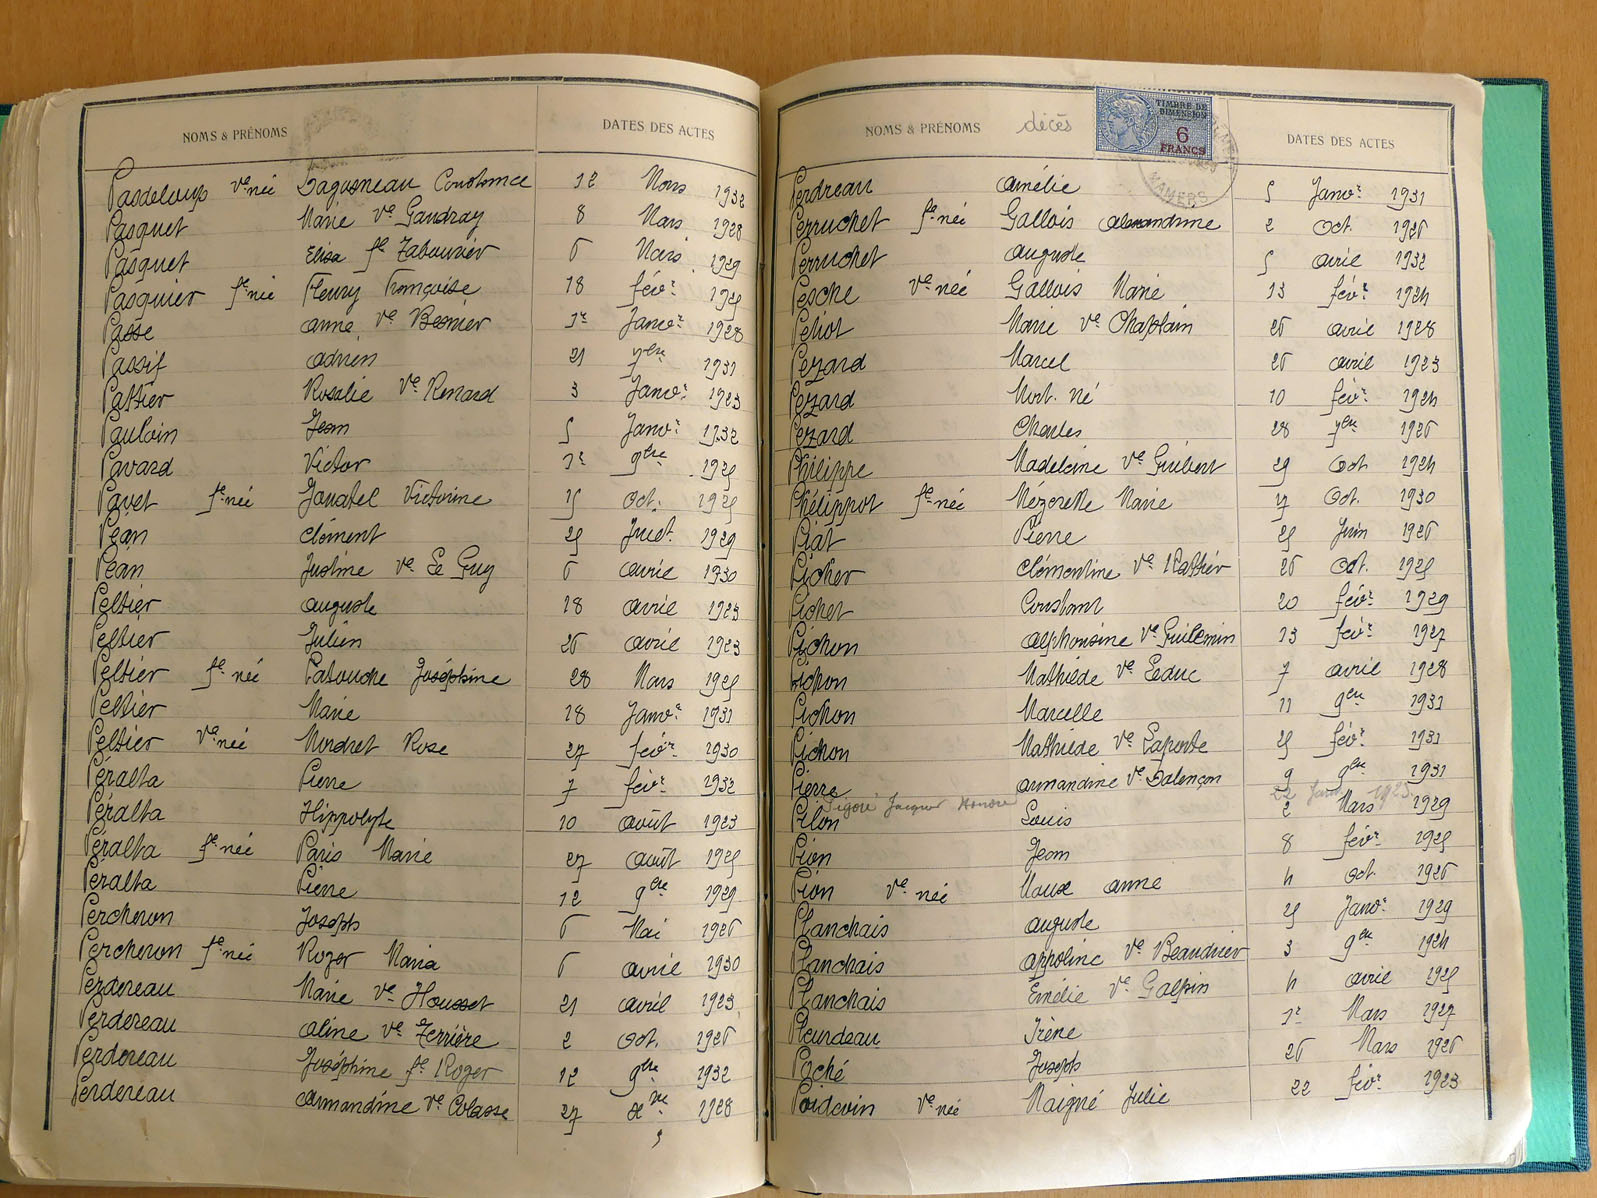 NOMS & PRÉNOMS DATES DES ACTES
Pasdeloup Ve née Dagusneau Constance 12 Mars 1932
Pasquet Marie Ve Gaudray 8 Mars 1928
Pasquet Elisa fe 6 Mars 1929
Pasquier fe née Fleury Françoise 18 févr. 1925
Passe anne Ve Besnier 1er Janvr. 1928
Passif adrien 21 7bre 1931
Pattier Rosalie Ve Renard 3 Janvr. 1923
Paulain Jean 5 Janvr. 1932
Pavard Victor 1er 9bre 1925
Pavet fe née Victorine 15 Oct. 1925
Péan Clément 25 Juill. 1929
Péan Justine Ve Le Guy 6 avril 1930
Peltier auguste 18 avril 1923
Peltier Julien 26 avril 1923
Peltier fe née Patouche Joséphine 28 Mars 1925
Peltier Marie 18 Janvr. 1931
Peltier Ve née Mordret Rose 27 févr. 1930
Péralta Pierre 7 févr. 1932
Péralta Hippolyte 10 août 1923
Péralta fe née Paris Marie 27 août 1925
Péralta Pierre 12 9bre 1929
Percheron Joseph 6 Mai 1926
Percheron fe née Roger Maria 6 avril 1930
Perdereau Marie Ve Housset 21 avril 1923
Perdereau aline Ve Ferrière 2 Oct. 1926
Perdereau Joséphine fe Roger 12 9bre 1932
Perdereau armandine Ve Colasse 27 Xbre 1928
NOMS & PRÉNOMS décès DATES DES ACTES
TIMBRE DE
DIMENSION
6
FRANCS
MAMERS
Perdreau amélie 5 Janvr. 1931
Perruchet fe née Gallois alexandrine 2 Oct. 1926
Perruchet auguste 5 avril 1932
Pesche Ve née Gallois Marie 13 févr. 1924
Petiot Marie Ve Chaplain 26 avril 1928
Pezard Marcel 26 avril 1923
Pezard Mort. né 10 févr. 1924
Pezard Charles 28 7bre 1926
Philippe Madeleine Ve Guibert 29 Oct 1924
Phélippot fe née Mézerette Marie 17 Oct. 1930
Piat Pierre 25 Juin 1926
Picher Clémentine Ve Rattier 26 Oct. 1925
Pichet Constant 20 févr. 1929
Pichon alphonsine Ve Guillemin 13 févr. 1927
Pichon Mathilde Ve Leduc 7 avril 1928
Pichon Marcelle 11 9bre 1931
Pichon Mathilde Ve Laporte 25 févr. 1931
Pierre armandine Ve Dalençon 9 9bre 1931
Pigoré Jacques Honoré 22 Janv. 1925
Pilon Louis 2 Mars 1929
Pion Jean 8 févr. 1925
Pion Ve née Roux anne 4 Oct. 1926
Planchais auguste 25 Janvr. 1929
Planchais appoline Ve Beaudrier 3 9bre 1924
Planchais Emélie Ve Galpin 4 avril 1925
Pleurdeau Irène 1er Mars 1927
Poché Joseph 26 Mars 1926
Poidevin Ve née Maigné Julie 22 févr. 1923